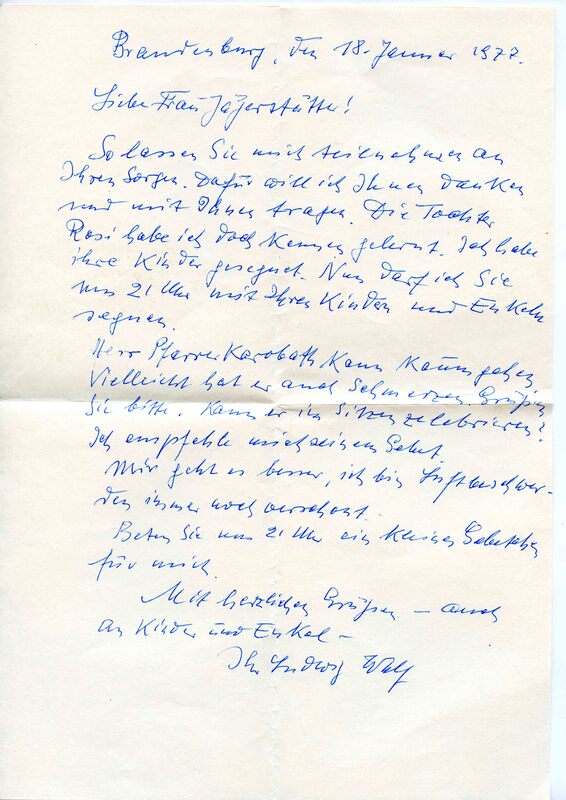 Brandenburg, den 18. Januar 1977.
Liebe Frau Jägerstätter!
So lassen Sie mich teilnehmen an
Ihren Sorgen. Dafür will ich Ihnen danken
und mit Ihnen tragen. Die Tochter
Rosi habe ich doch kennen gelernt. Ich habe
ihre Kinder gesegnet. Nun darf ich Sie
um 21 Uhr mit Ihren Kindern und Enkeln
segnen.
Herr Pfarrer Karobath kann kaum gehen
Vielleicht hat er auch Schmerzen. Grüßen
Sie bitte. Kann er im Sitzen zelebrieren?
Ich empfehle mich seinem Gebet.
Mir geht es besser, ich bin Luftbeschwer-
den immer noch verschont.
Beten Sie um 21 Uhr ein kleines Gebetchen
für mich.
Mit herzlichen Grüßen – auch
an Kinder und Enkel –
Ihr Ludwig Wolf